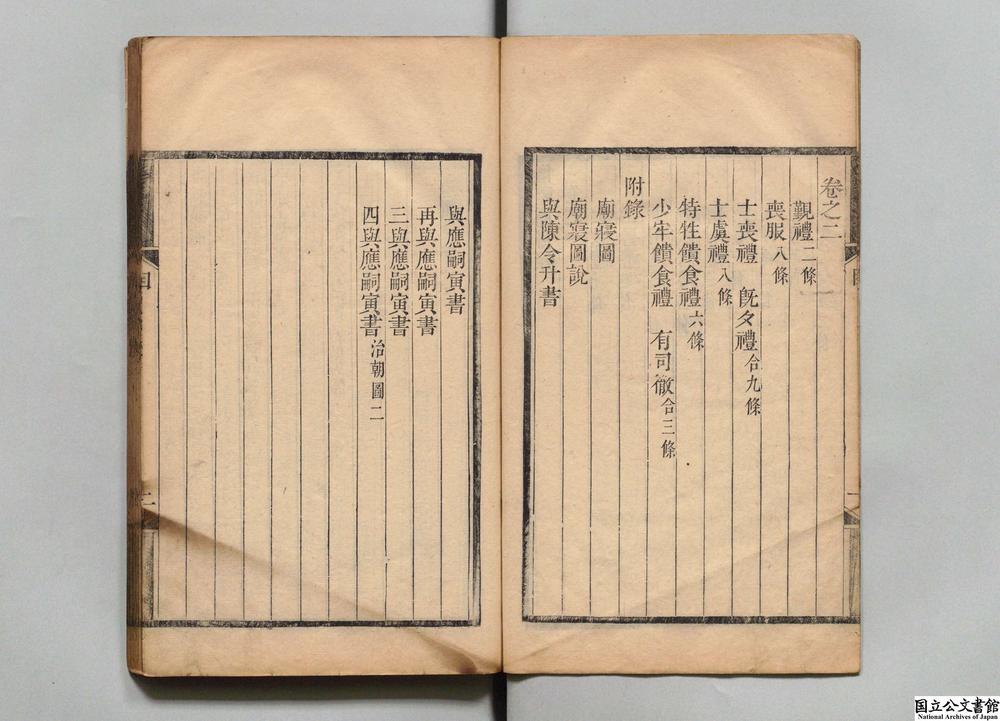 卷之二
覲禮二條
喪服八條
士喪禮　旣夕禮合九條
士虞禮八條
特牲饋食禮六條
少牢饋食禮　有司徹合三條
附錄
廟寢圖
廟寢圖說
與陳令升書
與應嗣寅書
再與應嗣寅書
三與應嗣寅書
四與應嗣寅書治朝圖二
国立公文書館
National Archives of Japan